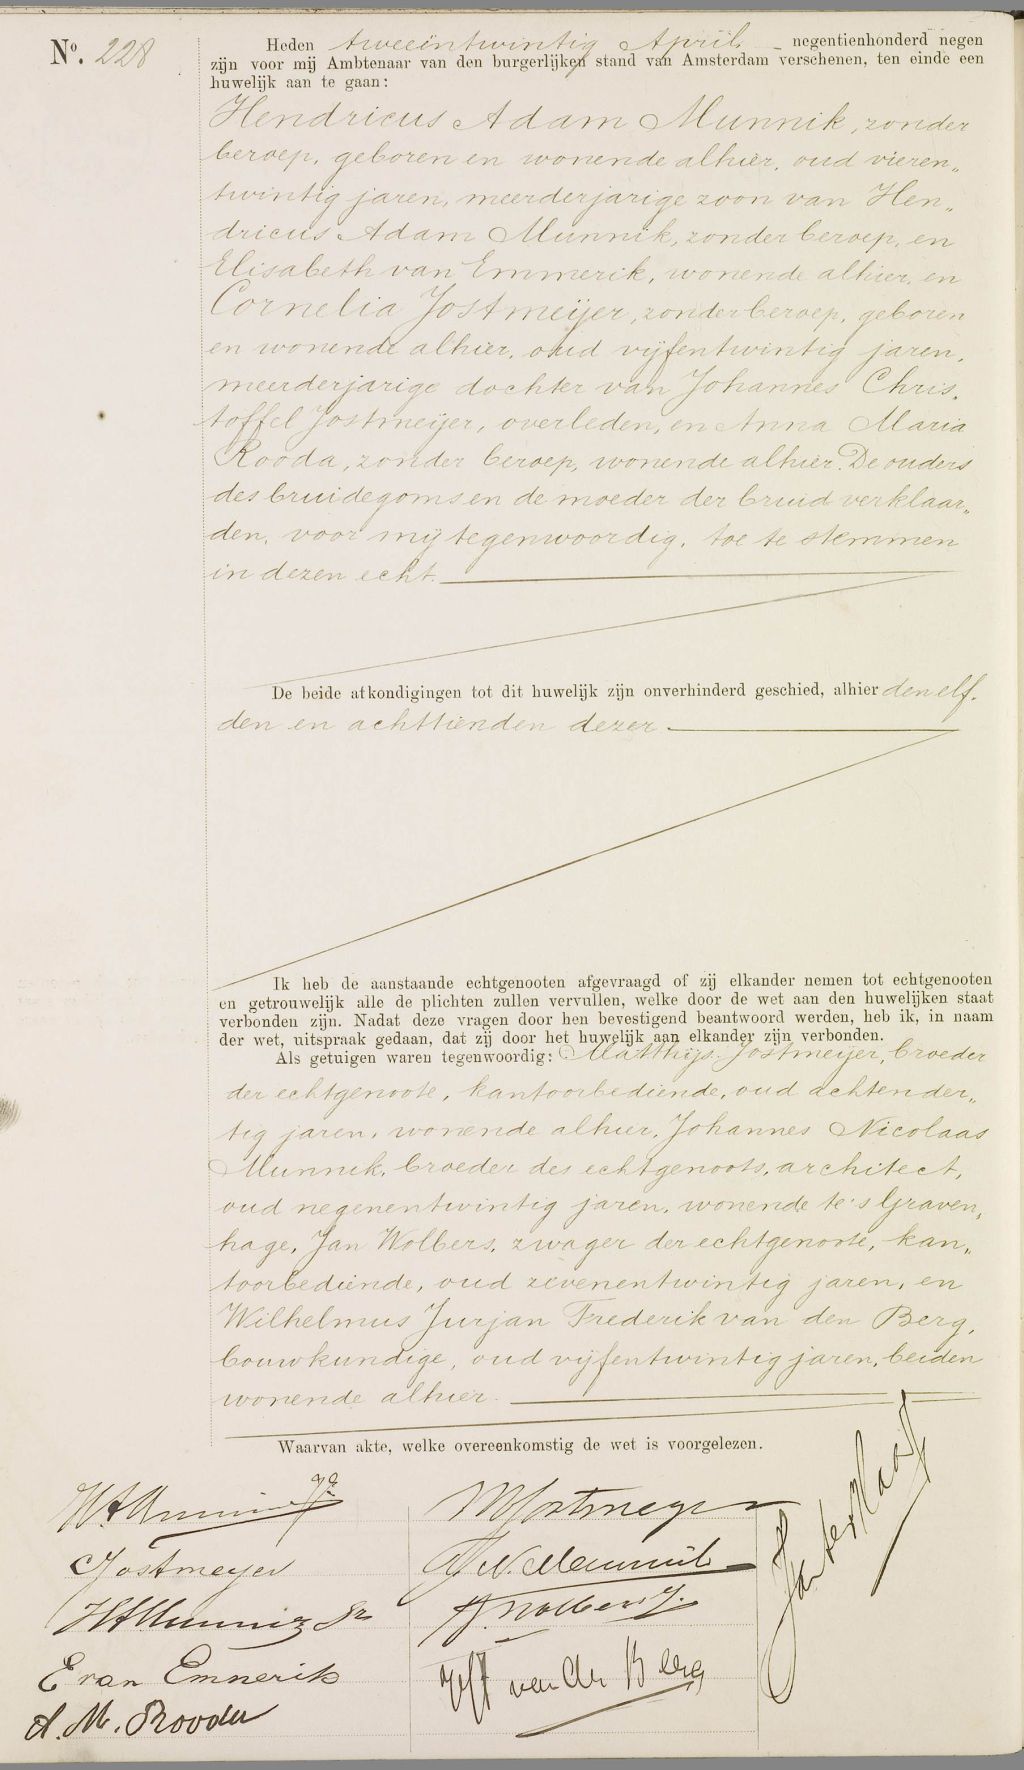 No. 228
Heden tweeëntwintig April negentienhonderd negen
zijn voor mij Ambtenaar van den burgerlijken stand van Amsterdam verschenen, ten einde een
huwelijk aan te gaan:
Hendricus Adam Munnik, zonder
beroep, geboren en wonende alhier, oud vieren„
twintig jaren, meerderjarige zoon van Hen„
dricus Adam Munnik, zonder beroep, en
Elisabeth van Emmerik, wonende alhier, en
Cornelia Jostmeijer, zonder beroep, geboren
en wonende alhier, oud vijfentwintig jaren,
meerderjarige dochter van Johannes Chris„
toffel Jostmeijer, overleden, en Anna Maria
Rooda, zonder beroep, wonende alhier. De ouders
des bruidegoms en de moeder der bruid verklaar„
den, voor mij tegenwoordig, toe te stemmen
in dezen echt.
De beide afkondigingen tot dit huwelijk zijn onverhinderd geschied, alhier den elf„
den en achttienden dezer
Ik heb de aanstaande echtgenooten afgevraagd of zij elkander nemen tot echtgenooten
en getrouwelijk alle de plichten zullen vervullen, welke door de wet aan den huwelijken staat
verbonden zijn. Nadat deze vragen door hen bevestigend beantwoord werden, heb ik, in naam
der wet, uitspraak gedaan, dat zij door het huwelijk aan elkander zijn verbonden.
Als getuigen waren tegenwoordig: Matthijs Jostmeijer, broeder
der echtgenoote, kantoorbediende, oud achtender„
tig jaren, wonende alhier, Johannes Nicolaas
Munnik, broeder des echtgenoots, architect,
oud negenentwintig jaren, wonende te 's Graven„
hage, Jan Wolbers, zwager der echtgenoote, kan„
toorbediende, oud zevenentwintig jaren, en
Wilhelmus Jurjan Frederik van den Berg,
bouwkundige, oud vijfentwintig jaren, beiden
wonende alhier.
Waarvan akte, welke overeenkomstig de wet is voorgelezen.
HAMunnik Jr.
MJostmeyer
CJostmeyer
JN. Munnik
HAMunnik Sr
J. Wolbers Jr.
E van Emmerik
WJF van den Berg
A. M. Rooda